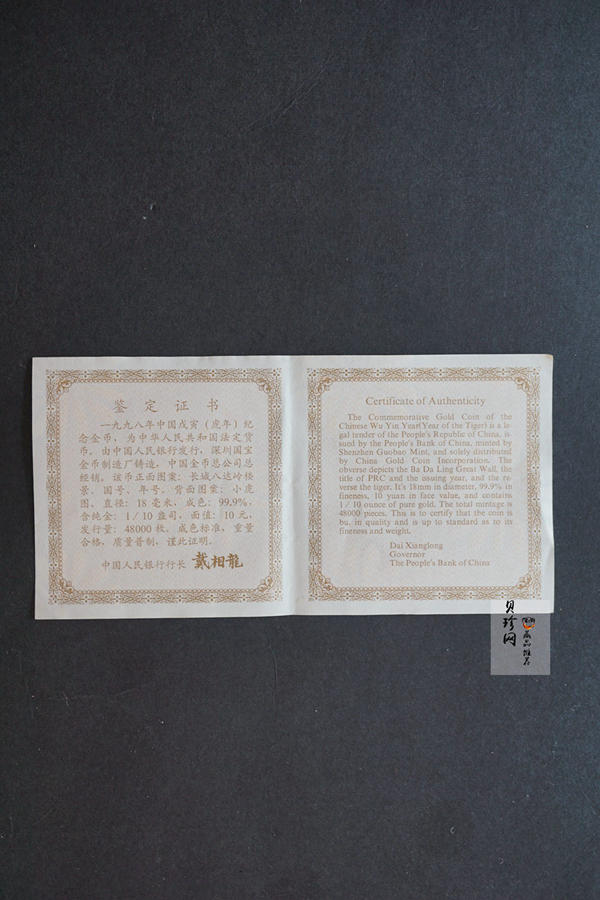 鉴定证书
一九九八年中国戊寅（虎年）纪
念金币，为中华人民共和国法定货
币。由中国人民银行发行，深圳国宝
金币制造厂铸造，中国金币总公司总
经销。该币正面图案：长城八达岭楼
景、国号、年号。背面图案：小虎
图、直径：18毫米，成色：99.9%，
含纯金：1/10盎司，面值：10元，
发行量：48000枚。成色标准，重量
合格，质量普制，谨此证明。
中国人民银行行长 戴相龍
Certificate of Authenticity
The Commemorative Gold Coin of the
Chinese Wu Yin Year(Year of the Tiger) is a le-
gal tender of the People's Republic of China, is-
sued by the People's Bank of China, minted by
Shenzhen Guobao Mint, and solely distributed
by China Gold Coin Incorporation. The
obverse depicts the Ba Da Ling Great Wall, the
title of PRC and the issuing year, and the re-
verse the tiger. It's 18mm in diameter, 99.9% in
fineness, 10 yuan in face value, and contains
1/10 ounce of pure gold. The total mintage is
48000 pieces. This is to certify that the coin is
bu. in quality and is up to standard as to its
fineness and weight.
Dai Xianglong
Governor
The People's Bank of China
贝珍网
藏品推荐